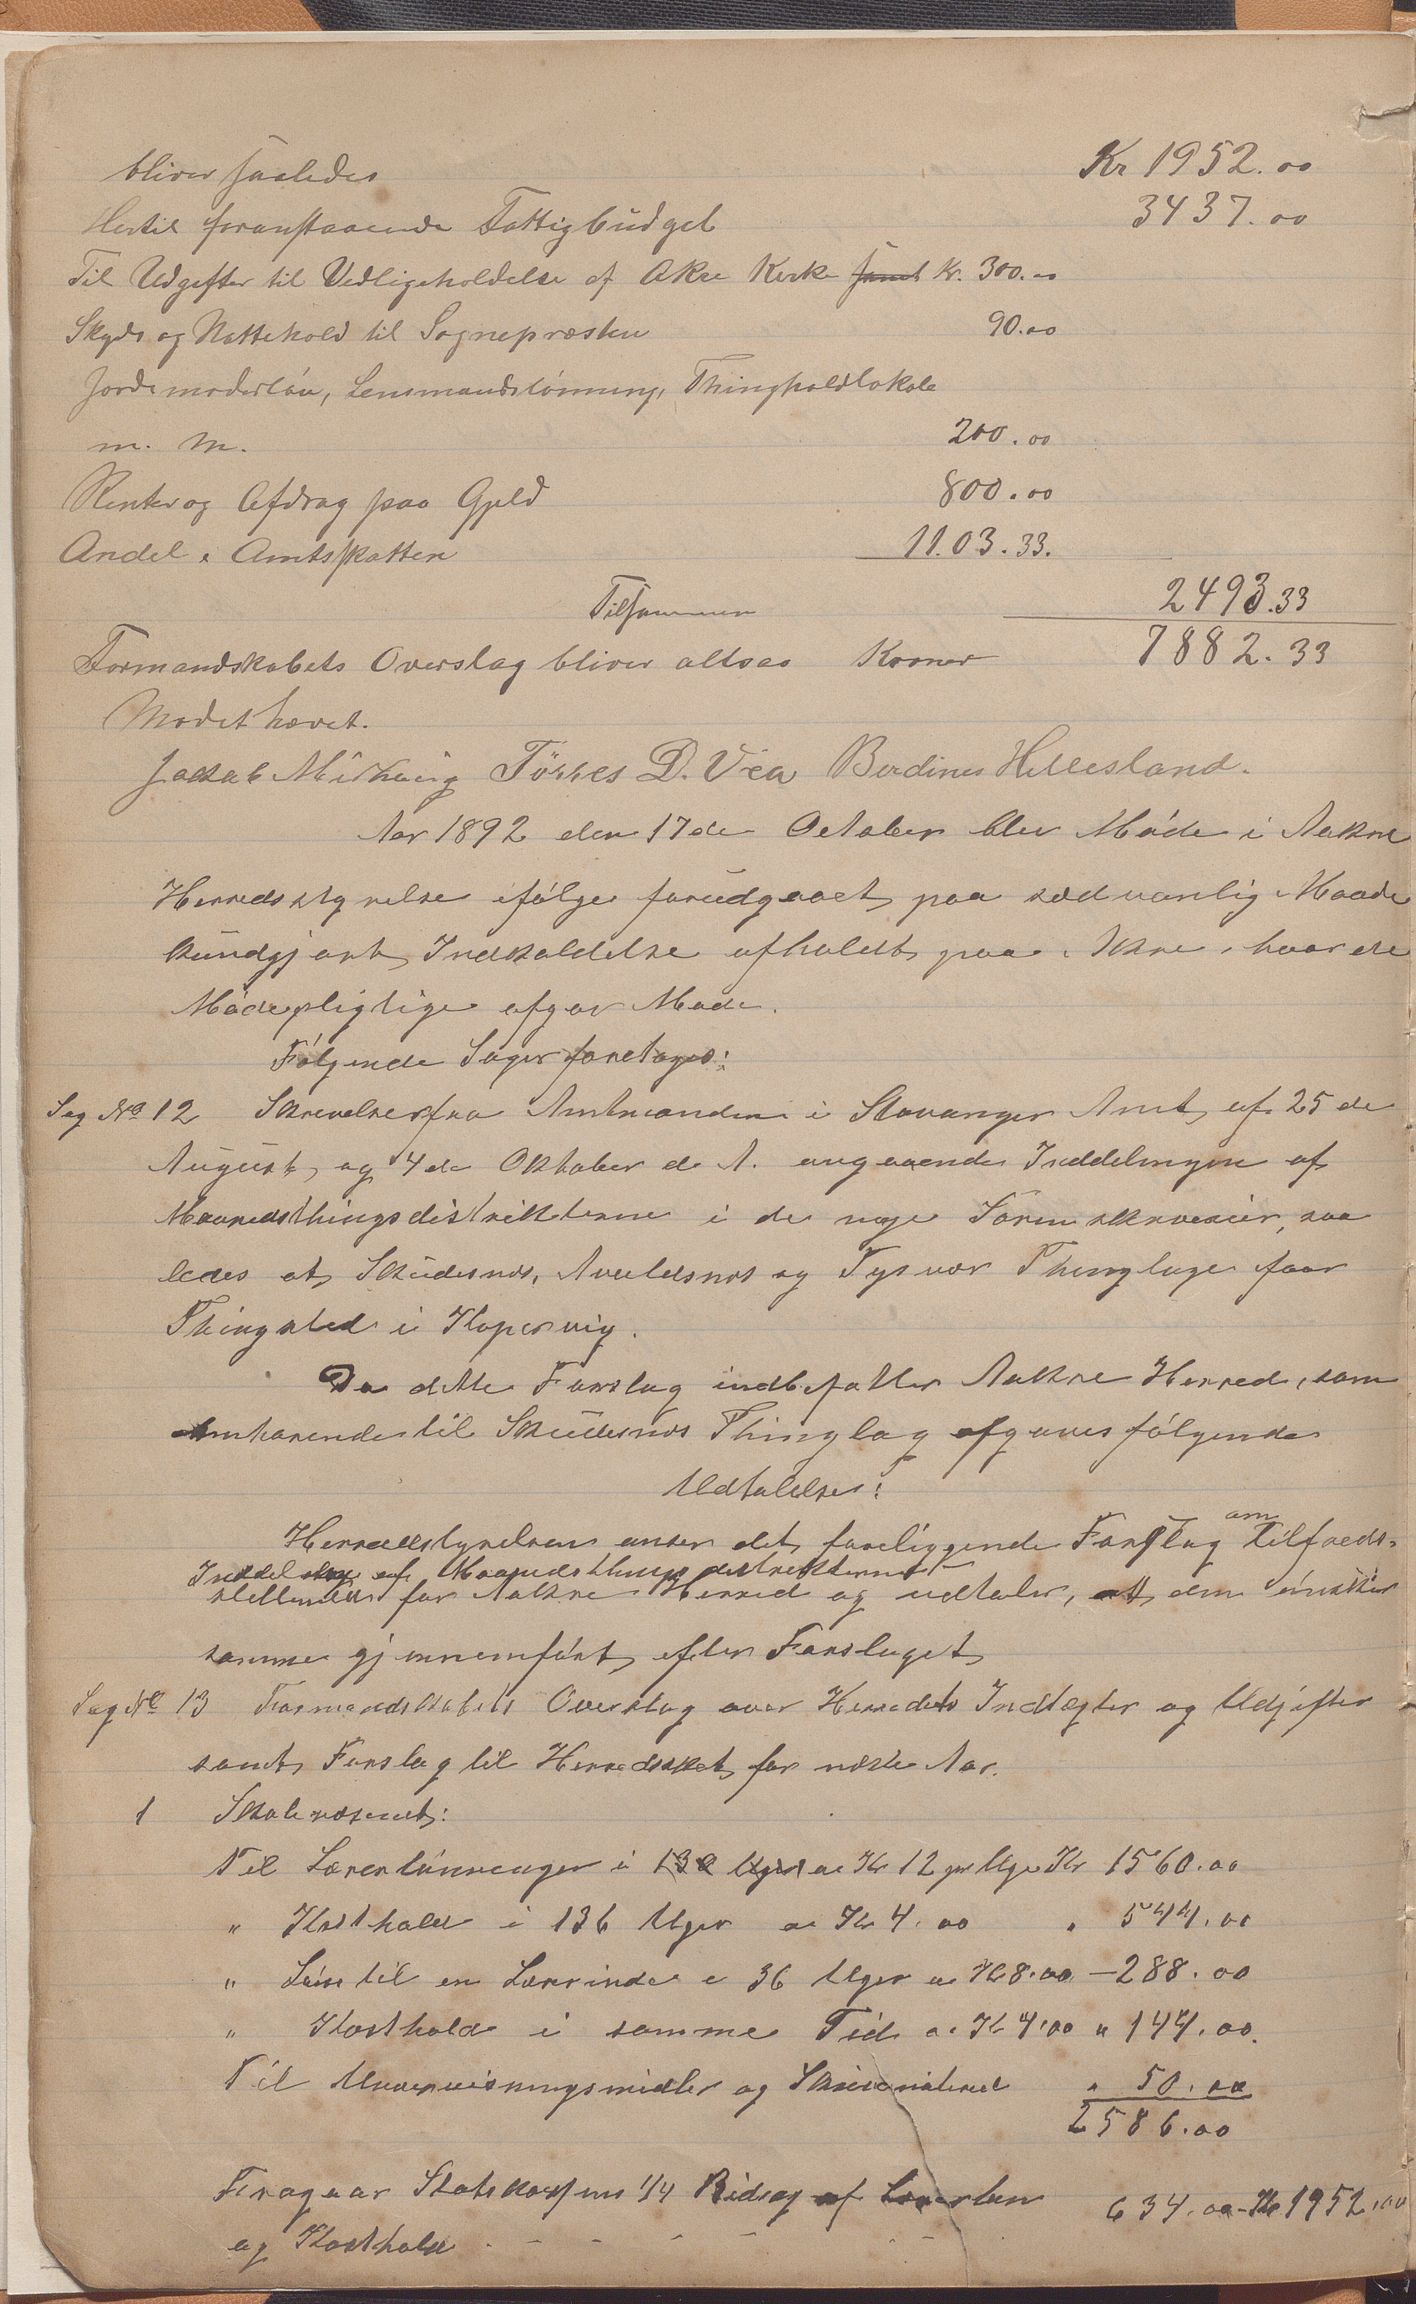 bliver saaledes Kr 1952.00
Hertil foranstaaende Fattigbudget 3437.00
Til Udgifter til Vedligeholdelse af Akre Kirke samt Kr. 300.00
Skyds og Nattehold til Sognepræsten 90.00
Jordemoderløn, Lensmandslønning, Thingholdlokale
m. m. 200.00
Renter og Afdrag paa Gjeld 800.00
Andel i Amtsskatten 11.03.33.
Tilsammen 2493.33
Formandskabets Overslag bliver altsaa Kroner 7882.33
Mødet hævet.
Jakob Medhaug Törres D. Vea Berdines Hillesland.
Aar 1892 den 17de October blev Møde i Aakre
Herredsstyrelse ifølge forudgaaet paa sædvanlig Maade
kundgjort Indkaldelse afholdt paa Akre, hvor de
Mødepligtige afgav Møde.
Følgende Sager foretoges:
Sag No 12 Skrivelser fra Amtmanden i Stavanger Amt af 25de
August og 4de Oktober d. A. angaaende Inddelingen af
Maanedsthingsdistrikterne i de nye Sorenskriverier, saa
ledes at Skudesnes, Avaldsnes og Tysvær Thinglage faar
Thingsted i Kopervig.
Da dette Forslag indbefatter Aakre Herred, som
henhørende til Skudesnes Thinglag afgaves følgende
Udtalelse:
Herredsstyrelsen anser det foreliggende Forslag om tilfreds-
Inddeling af Maanedsthingsdistrikterne
stillende for Aakre Herred og udtaler, at den ønsker
samme gjennemført efter Forslaget
Sag No 13 Formandskabets Overslag over Herredets Indtægter og Udgifter
samt Forslag til Herredsskat for næste Aar.
1 Skolevæsenet:
Til Lærerlønninger i 130 Uger a Kr 12 pr Uge Kr 1560.00
" Kosthold i 136 Uger a Kr 4.00 " 544.00
" Løn til en Lærerinde i 36 Uger a Kr 8.00 — 288.00
" Kosthold i samme Tid a Kr 4.00 " 144.00.
Til Undervisningsmidler og Skrivemateriel " 50.00
2586.00
Fragaar Statskassens 1/4 Bidrag af Lærerløn
og Kosthold - - - - - - 634.00 - Kr 1952.00